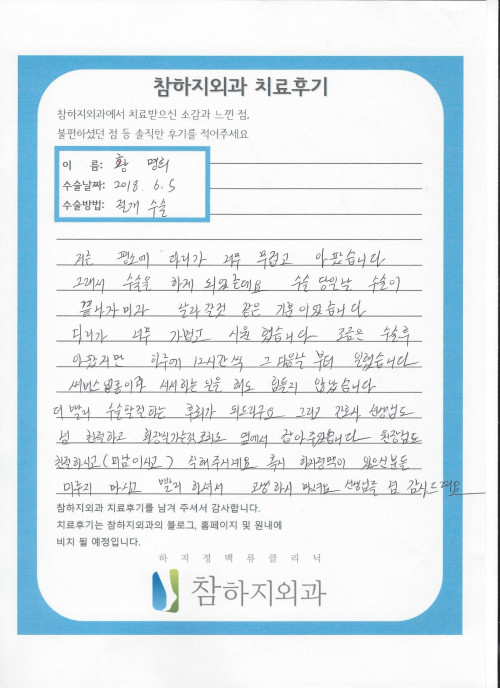 참하지외과 치료후기
참하지외과에서 치료받으신 소감과 느낀 점,
불편하셨던 점 등 솔직한 후기를 적어주세요
이 름: 황 명희
수술날짜: 2018. 6. 5
수술방법: 절개 수술
저는 평소에 다리가 너무 무겁고 아팠습니다
그래서 수술을 하게 되었는데요 수술 당일날 수술이
끝나자마자 날라갈것 같은 기분이였습니다
다리가 너무 가볍고 시원했습니다 조금은 수술후
아팠지만 하루에 12시간씩 그 다음날부터 일했습니다
써비스 업종이라 서서하는 일을 해도 힘들지 않았습니다
더 빨리 수술할걸 하는 후회가 되드라구요 그리고 간호사 선생님도
넘 친절하고 손도 옆에서 잡아주었습니다 원장님도
친절하시고 (미남이시고) 잘해주시네요 혹시 하지정맥이 있으신분들
미루지 마시고 빨리 하셔서 고생하시 마세요 선생님들 넘 감사드려요
참하지외과 치료후기를 남겨 주셔서 감사합니다.
치료후기는 참하지외과의 블로그, 홈페이지 및 원내에
비치 될 예정입니다.
하지정맥류클리닉
참하지외과